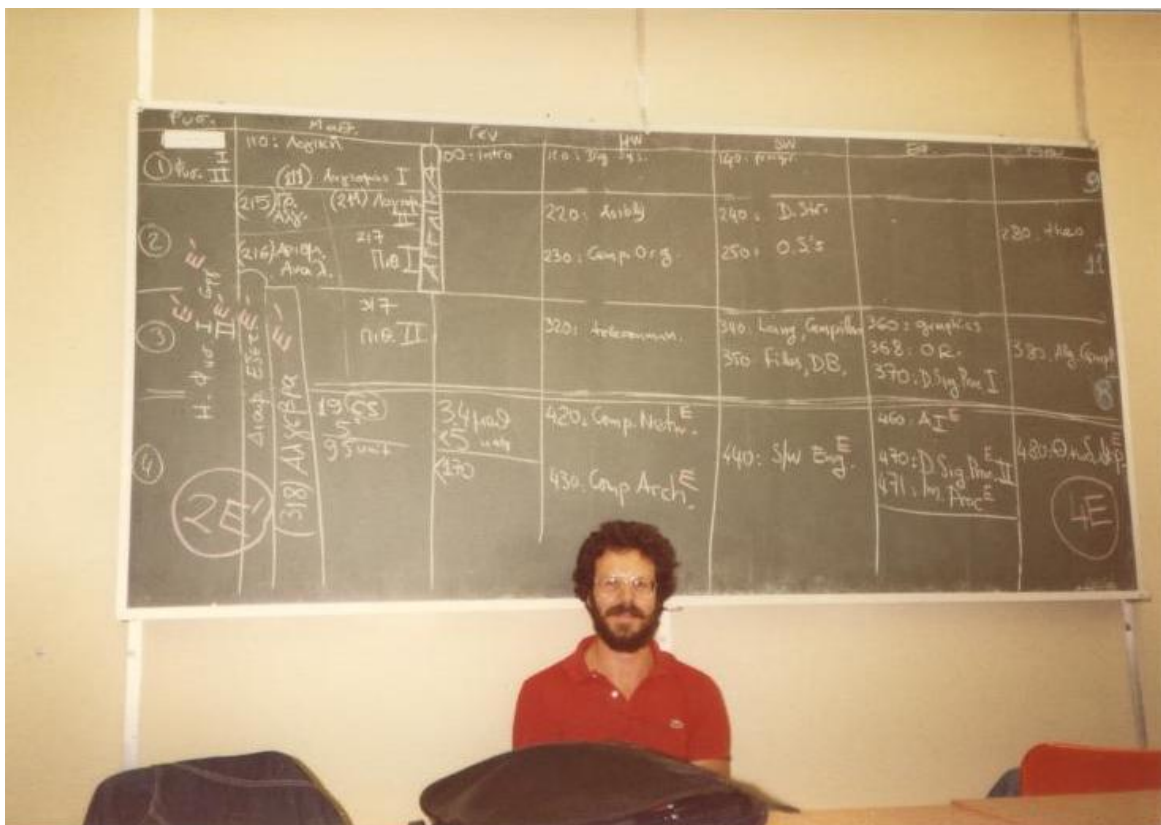 Φυσ. Μαθ. Γεν HW SW
① Φυσ. I II
110: Λογική
(111) Λογισμός I
100: Intro
110: Dig. Sys.
140: Progr.
9
②
(215) Γρ. Αλγ.
(211) Λογισμ. II
217 Πιθ I
(216) Αριθμ. Αναλ.
ΑΓΓΛΙΚΑ
220: Assbly
230: Comp. Org.
240: D. Str.
250: O.S's
280: theo
11
③
Η. Φυσ. I II
Διαφ. Εξισ.
(318) Αλγεβρα
317
Πιθ. II
320: telecommun.
340: Lang, Compilers
350 Files, DB.
360: graphics
368: O.R.
370: D. Sig Proc I
380: Alg. Compl
8
④
2E'
19 CS
5
95 unit
34 μαθ
<170
420: Comp. Netw. E
430: Comp Arch. E
440: S/W Eng. E
460: AI E
470: D. Sig Proc. II E
471: Im. Proc E
480:
4E